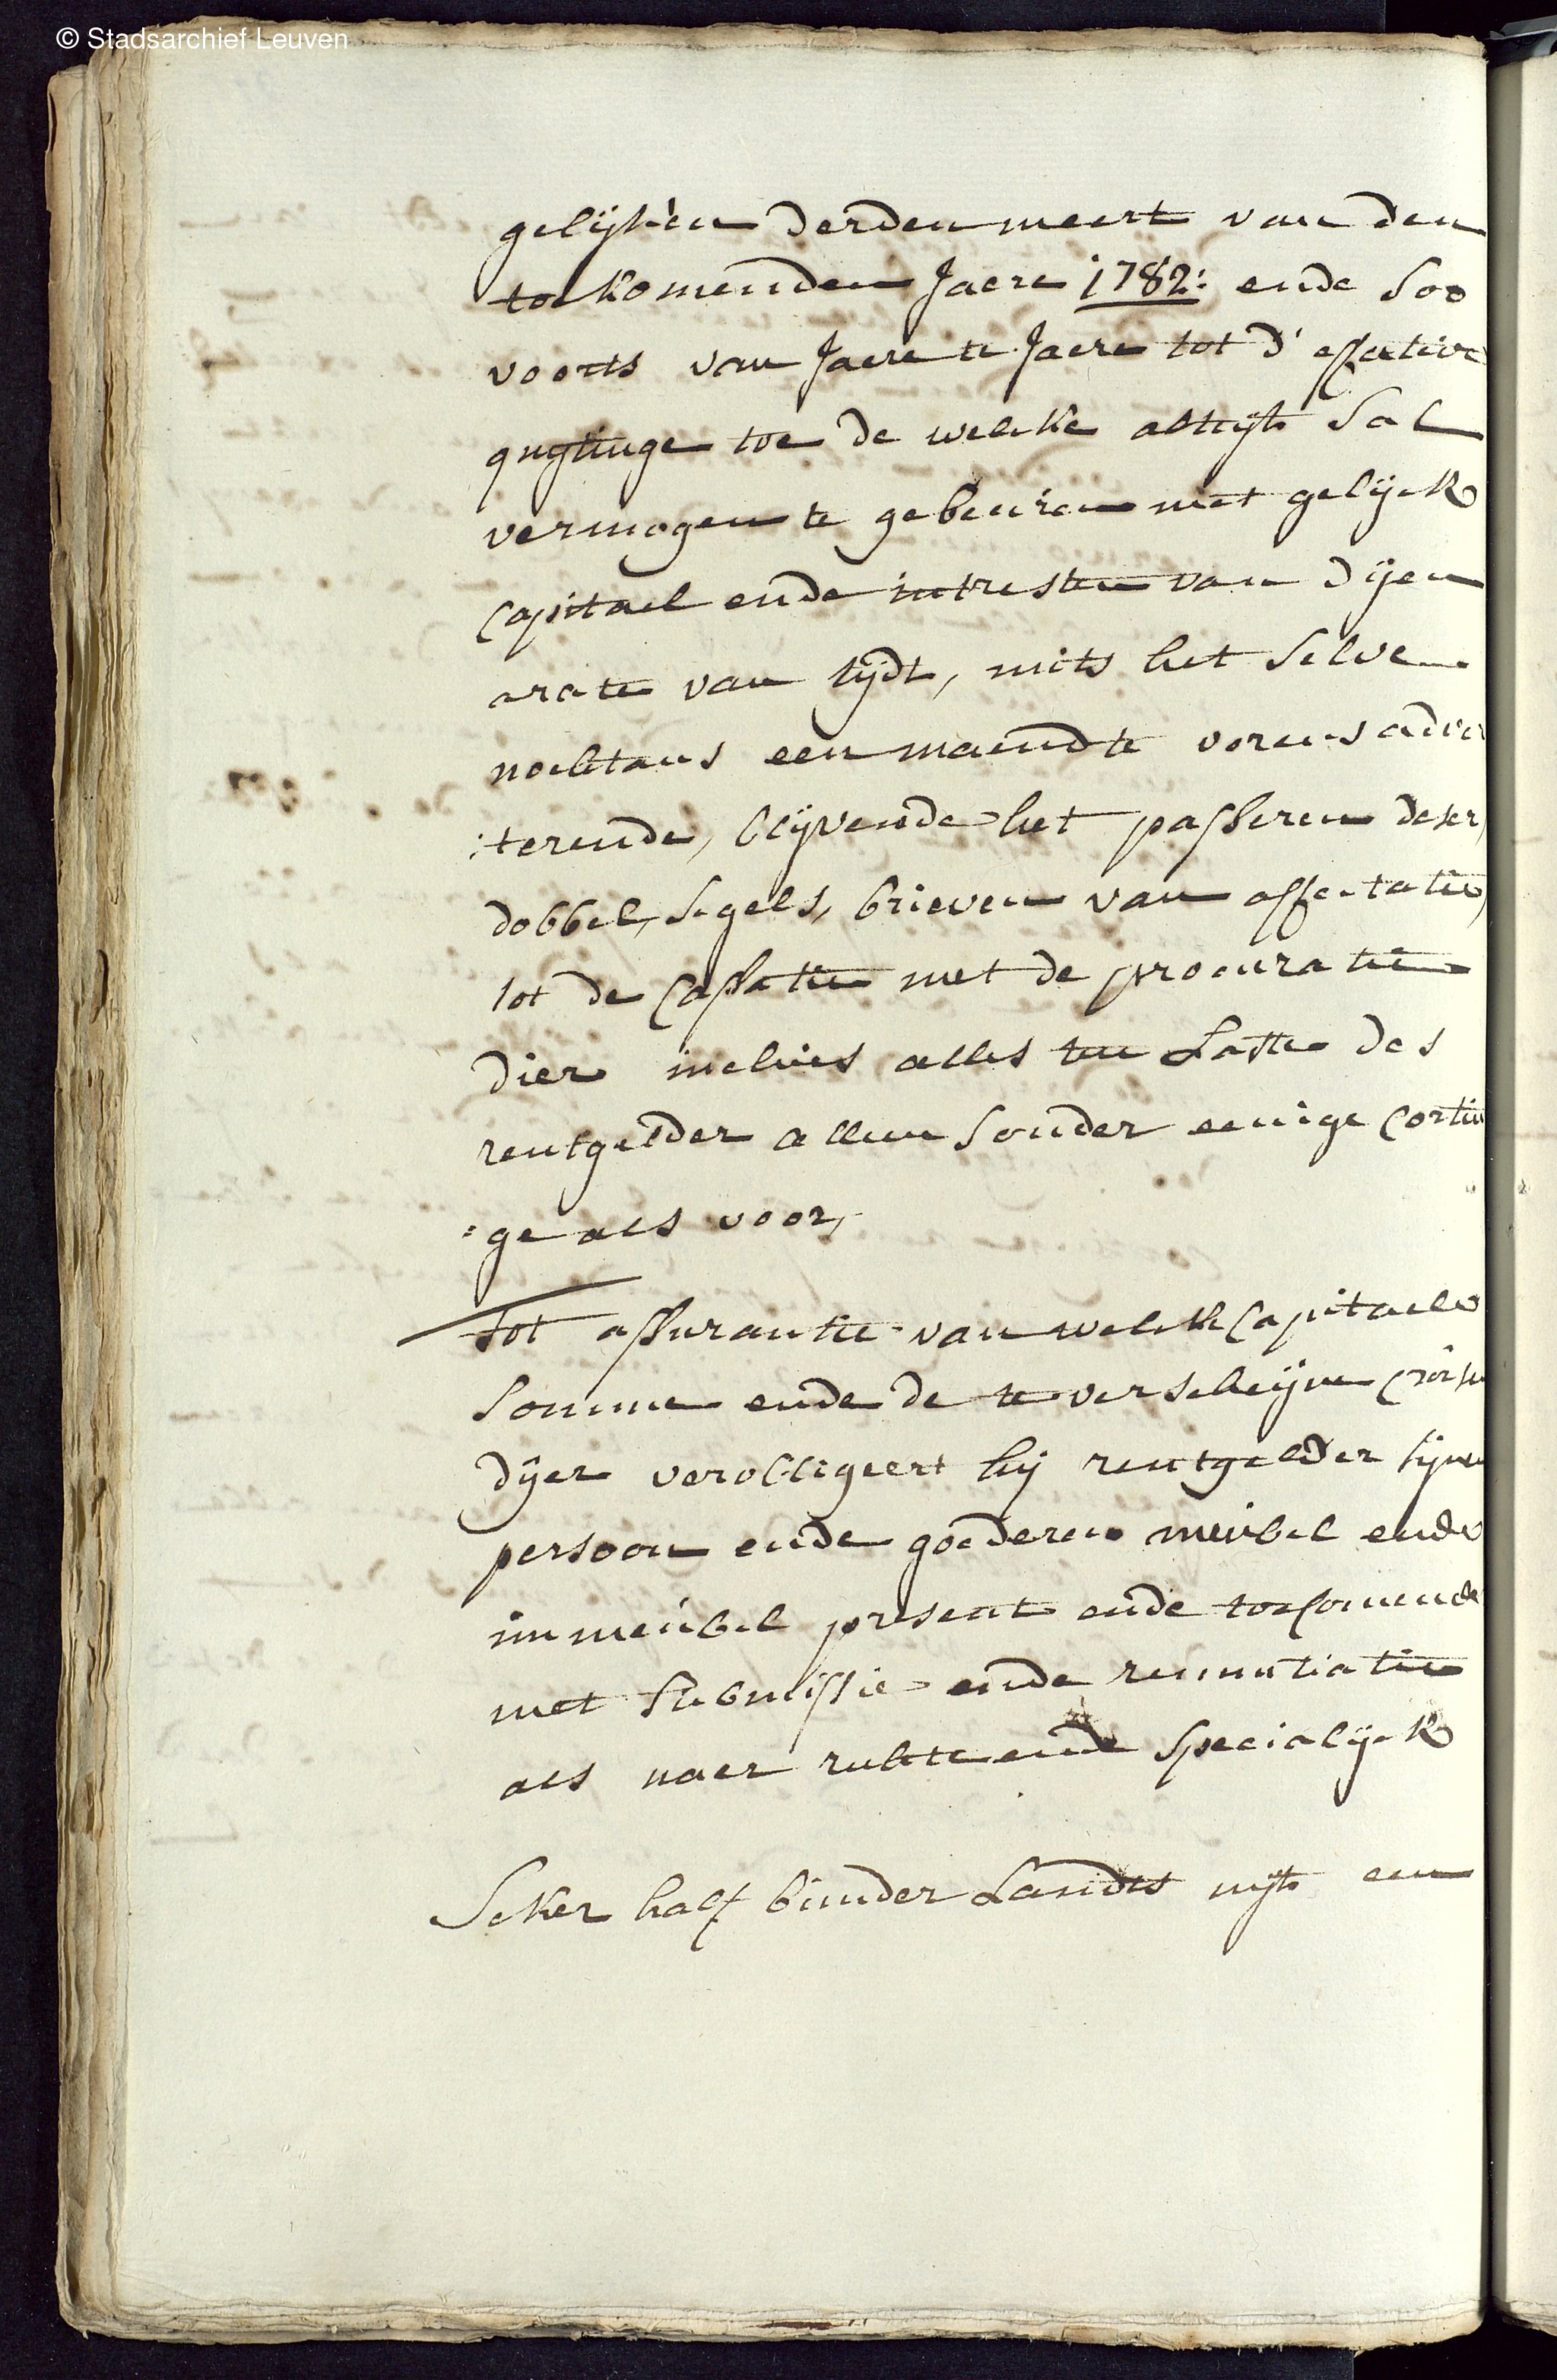 © Stadsarchief Leuven
gelijken derden meert van den
toekomenden Jaere 1782: ende soo
voorts van Jaere te Jaere tot d'effective
quytinge toe de welcke altijt sal
vermogen te gebeuren met gelijck
Capitael ende intresten van dijen
arate van tijdt, mits het selve
nochtans een maendt te vorens adver
:terende, blijvende het passeren deser,
dobbel, segels, brieven van affectatie,
tot de Cassatie met de procuratie
dier incluis alles ten Laste des
rentgelder alleen sonder eenige Cortin
:ge als voor,
Tot assurantie van welcke Capitaele
Somme ende de te verscheijne
dijer verobligeert hij rentgelder sijnen
persoon ende goederen meubel ende
immeubel present ende toecomende
met submissie ende renuntiatie
als naer rechte ende specialijck
Seker half bunder Landts uyt een